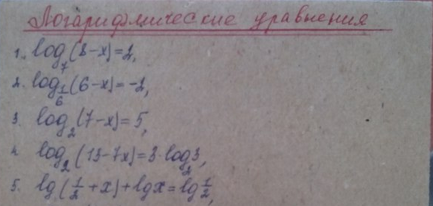 Логарифмические уравнения
1. log₇(8-x)=2,
2. log_{1/6}(6-x)=-2,
3. log₂(7-x)=5,
4. log₂(13-7x)=3·log₂3,
5. lg(1/2+x)+lgx=lg1/2,